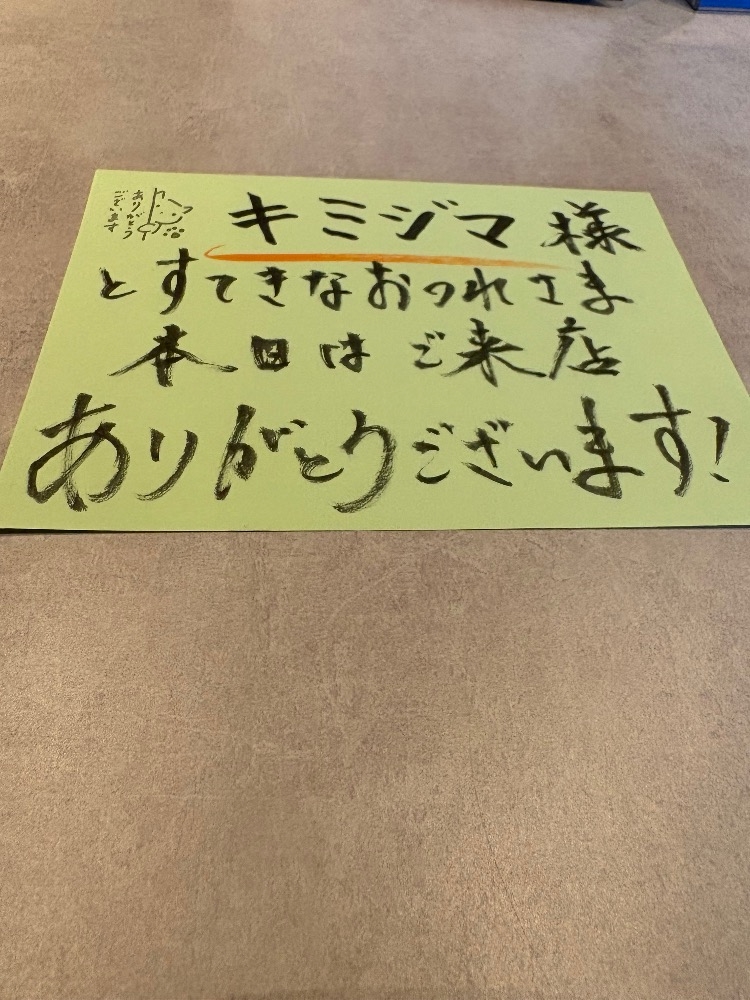 ありがとう
ございます
キミジマ 様
とすてきなおつれさま
本日は ご来店
ありがとうございます!